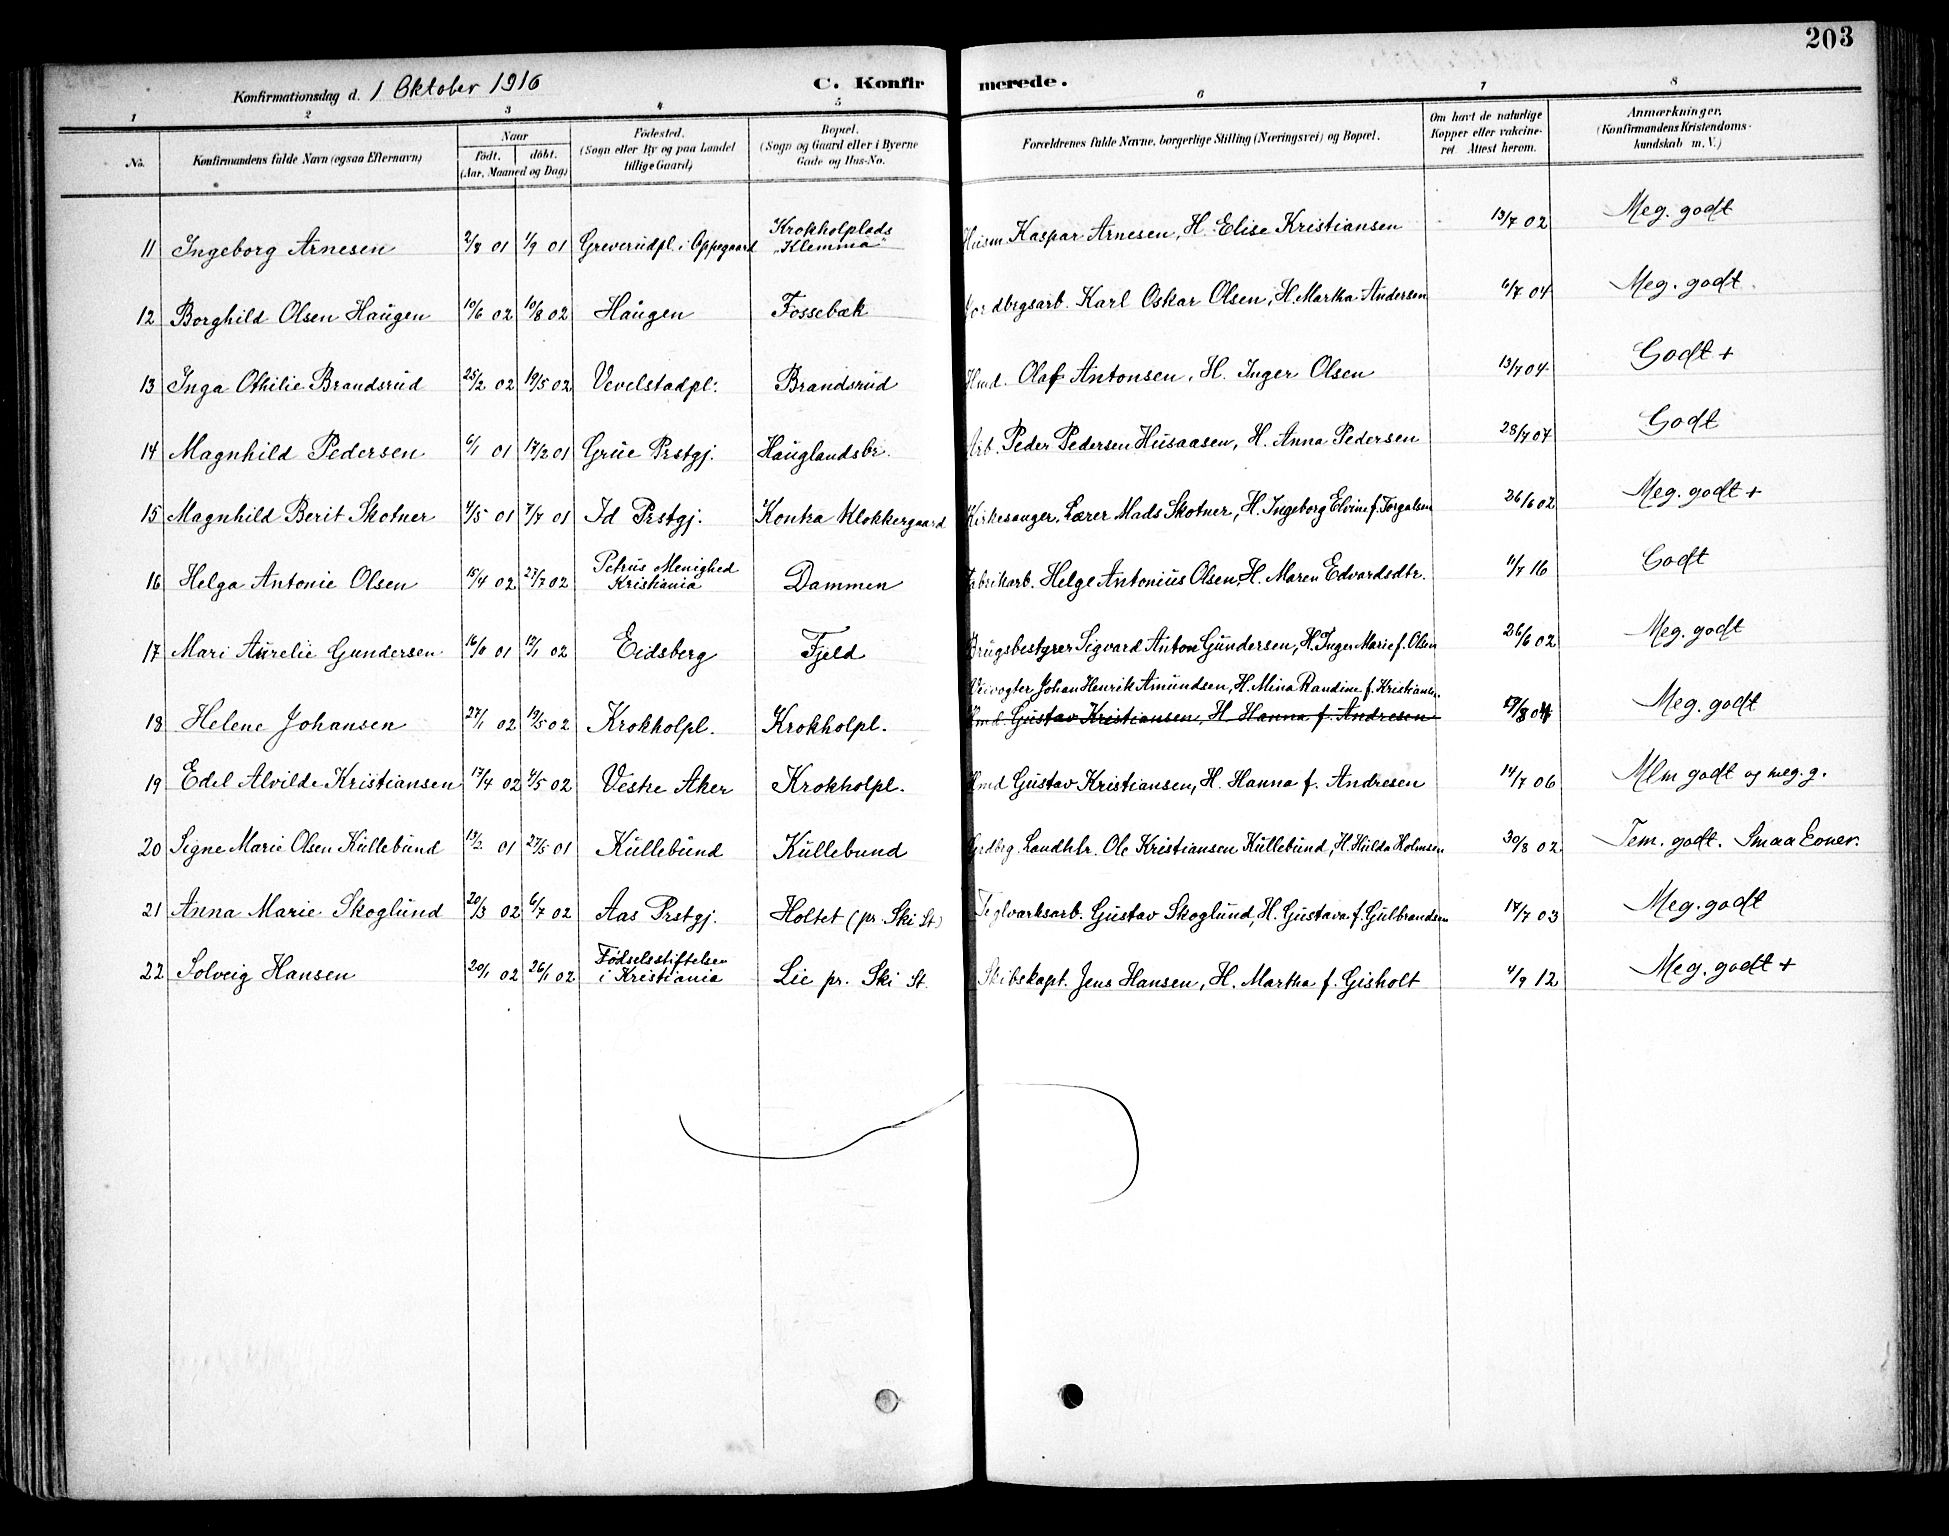 203
Konfirmationsdag d. 1 Oktober 1916 C. Konfirmerede.
1 2 3 4 5 6 7 8
No. Konfirmandens fulde Navn (ogsaa Efternavn) Naar født. døbt. (Aar, Maaned og Dag) Fødested. (Sogn eller By og paa Landet tillige Gaard) Bopæl. (Sogn og Gaard eller i Byerne Gade og Hus-No. Forældrenes fulde Navne, borgerlige Stilling (Næringsvei) og Bopæl. Om havt de naturlige Kopper eller vakcineret. Attest herom. Anmærkninger. (Konfirmandens Kristendomskundskab m. V.)
11 Ingeborg Arnesen 2/8 01 1/9 01 Greverudpl. i Oppegaard Krokholplads "Klemma" Husm. Kaspar Arnesen, H. Elise Kristiansen 13/7 02 Meg. godt
12 Borghild Olsen Haugen 10/6 02 10/8 02 Haugen Fossebæk Jordbrgsarb. Karl Oskar Olsen, H. Martha Andersen 6/7 04 Meg. godt.
13 Inga Othilie Brandsrud 25/2 02 19/5 02 Vevelstadpl. Brandsrud Hmd. Olaf Antonsen, H. Inger Olsen 13/7 04. Godt +
14 Magnhild Pedersen 6/1 01 17/2 01 Grue Prstgj. Hauglandsbr. Arb. Peder Pedersen Husaasen, H. Anna Pedersen 28/7 07 Godt
15 Magnhild Berit Skotner 4/5 01 7/7 01 Id Prstgj. Kontra Klokkergaard Kirkesanger, Lærer Mads Skotner, H. Ingeborg Elvine f. Torgalsen 26/6 02 Meg. godt +
16 Helga Antonie Olsen 15/4 02 27/7 02 Petrus Menighed Kristiania Dammen Fabrikarb. Helge Antonius Olsen, H. Maren Edvardsdtr. 11/7 16 Godt
17 Mari Aurelie Gundersen 16/8 01 12/1 02 Eidsberg Fjeld Brugsbestyrer Sigvard Anton Gundersen, H. Inger Marie f. Olsen 26/6 02 Meg. godt
Veivogter Johan Henrik Amundsen, H. Mina Randine f. Kristiansen.
18 Helene Johansen 27/1 02 19/5 02 Krokholpl. Krokholpl. Hmd Gustav Kristiansen, H. Hanna f. Andresen 04 Meg. godt
19 Edel Alvilde Kristiansen 17/4 02 4/5 02 Vestre Aker Krokholpl. Hmd Gustav Kristiansen, H. Hanna f. Andresen 14/7 06 Mlm godt og meg. g.
20 Signe Marie Olsen Kullebund 13/2 01 27/5 01 Kullebund Kullebund Grdbrg. Landhlr. Ole Kristiansen Kullebund, H. Hulda Holmsen 30/8 02 Tem. godt. Smaa Evner.
21 Anna Marie Skoglund 20/3 02 6/7 02 Aas Prstgj. Holtet (pr. Ski St) Teglværksarb. Gustav Skoglund, H. Gustava f. Gulbrandsen 17/7 03 Meg. godt
22 Solveig Hansen 20/1 02 26/1 02 Fødselsstiftelsen i Kristiania Lie pr. Ski St. Skibskapt. Jens Hansen, H. Martha f. Gisholt 4/9 12 Meg. godt +